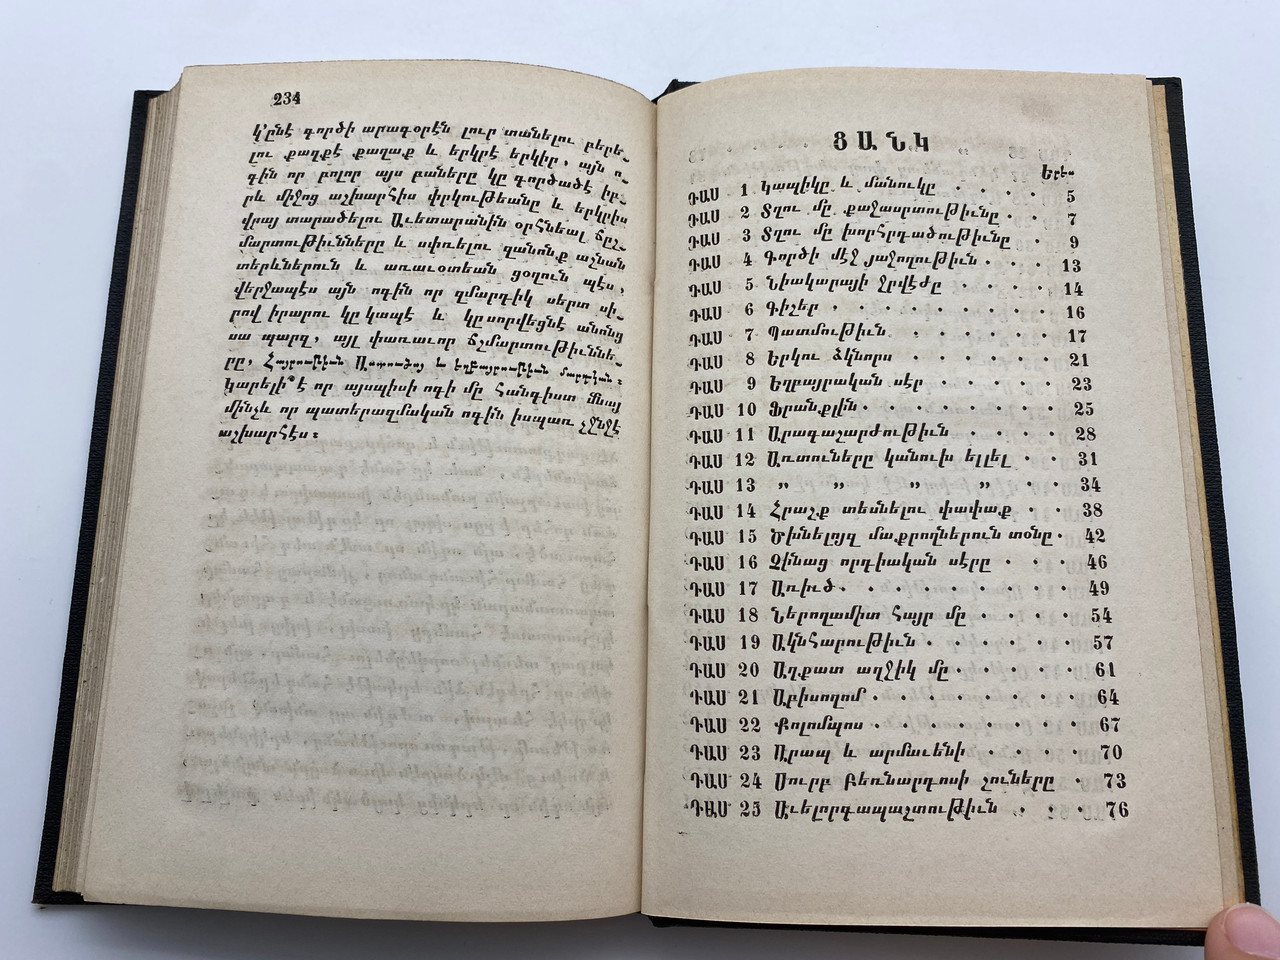 234
կ'ընէ գործի արագօրէն լուր տանելու բերե-
լու քաղքէ քաղաք և երկրէ երկիր, այն ո-
գին որ բոլոր այս բաները կը գործածէ իբ-
րև միջոց աշխարհիս փրկութեանը և երկրիս
վրայ տարածելու Աւետարանին օրհնեալ ճըշ-
մարտութիւնները և սփռելու զանոնք աշնան
տերևներուն և առաւօտեան ցօղուն պէս,
վերջապէս այն ոգին որ զմարդիկ սերտ սի-
րով իրարու կը կապէ և կը սորվեցնէ անոնց
սա պարզ, այլ փառաւոր ճշմարտութիւննե-
րը, Հայրութիւն Աստուծոյ և եղբայրութիւն մարդկան։
Կարելի՞ է որ այսպիսի ոգի մը հանգիստ մնայ
մինչև որ պատերազմական ոգին իսպառ չջնջէ
աշխարհէս։
ՑԱՆԿ
Երե-
ԴԱՍ 1 Կապիկը և մանուկը . . . . 5
ԴԱՍ 2 Տղու մը քաջասրտութիւնը . . 7
ԴԱՍ 3 Տղու մը խորհրդածութիւնը . 9
ԴԱՍ 4 Գործի մէջ յաջողութիւն . . . 13
ԴԱՍ 5 Նիակարայի Ջրվէժը . . . . 14
ԴԱՍ 6 Գիշեր , . . . . . . . 16
ԴԱՍ 7 Պատմութիւն . . . . . . 17
ԴԱՍ 8 Երկու ձկնորս . . . . . . 21
ԴԱՍ 9 Եղբայրական սէր . . . . . 23
ԴԱՍ 10 Ֆրանքլին . . . . . . . 25
ԴԱՍ 11 Արագաշարժութիւն . . . . 28
ԴԱՍ 12 Առտուները կանուխ ելլել . . 31
ԴԱՍ 13 „ „ „ „ . . 34
ԴԱՍ 14 Հրաշք տեսնելու փափաք . . 38
ԴԱՍ 15 Ծխնելոյզ մաքրողներուն տօնը . 42
ԴԱՍ 16 Չինաց որդիական սէրը . . . 46
ԴԱՍ 17 Առիւծ . . . . . . . . 49
ԴԱՍ 18 Ներողամիտ հայր մը . . . . 54
ԴԱՍ 19 Ակնհարութիւն . . . . . . 57
ԴԱՍ 20 Աղքատ աղջիկ մը . . . . . 61
ԴԱՍ 21 Աբիսողոմ . . . . . . . 64
ԴԱՍ 22 Քոլոմպոս . . . . . . . 67
ԴԱՍ 23 Արապ և արմաւենի . . . . 70
ԴԱՍ 24 Սուրբ Բեռնարդոսի շուները . 73
ԴԱՍ 25 Աւելորդապաշտութիւն . . . 76